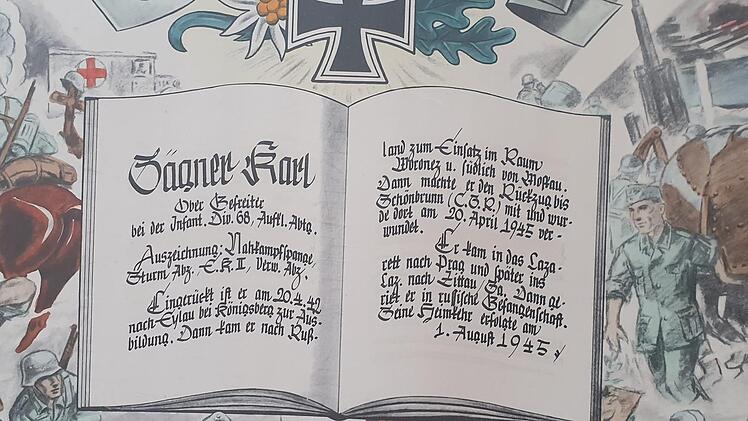 Sägner Karl
Ober Gefreiter
bei der Infant. Div. 68, Aufkl. Abtg.
Auszeichnung: Nahkampfspange,
Sturm, Abz. E.K.II, Verw. Abz.
Eingerückt ist er am 20.4.42
nach Eylau bei Königsberg zur Aus-
bildung. Dann kam er nach Ruß-
land zum Einsatz im Raum
Woronez u. südlich von Moskau.
Dann machte er den Rückzug bis
Schönbrunn (C.S.R.) mit und wur-
de dort am 20. April 1945 ver-
wundet.
Er kam in das Laza-
rett nach Prag und später ins
Laz. nach Zittau/Sa. Dann ge-
riet er in russische Gefangenschaft.
Seine Heimkehr erfolgte am
1. August 1945.